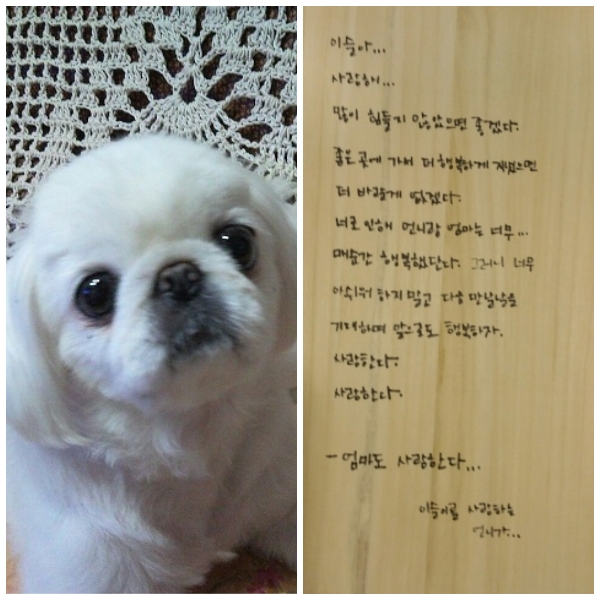 이슬아...
사랑해...
많이 힘들지 않았으면 좋겠다.
좋은곳에 가서 더 행복하게 지냈으면
더 바랄게 없겠다.
너로 인해 언니랑 엄마는 너무...
매순간 행복했단다. 그러니 너무
아쉬워 하지 말고 다음 만남을
기대하며 앞으로도 행복하자.
사랑한다.
사랑한다.
- 엄마도 사랑한다...
이슬이를 사랑하는
언니가...